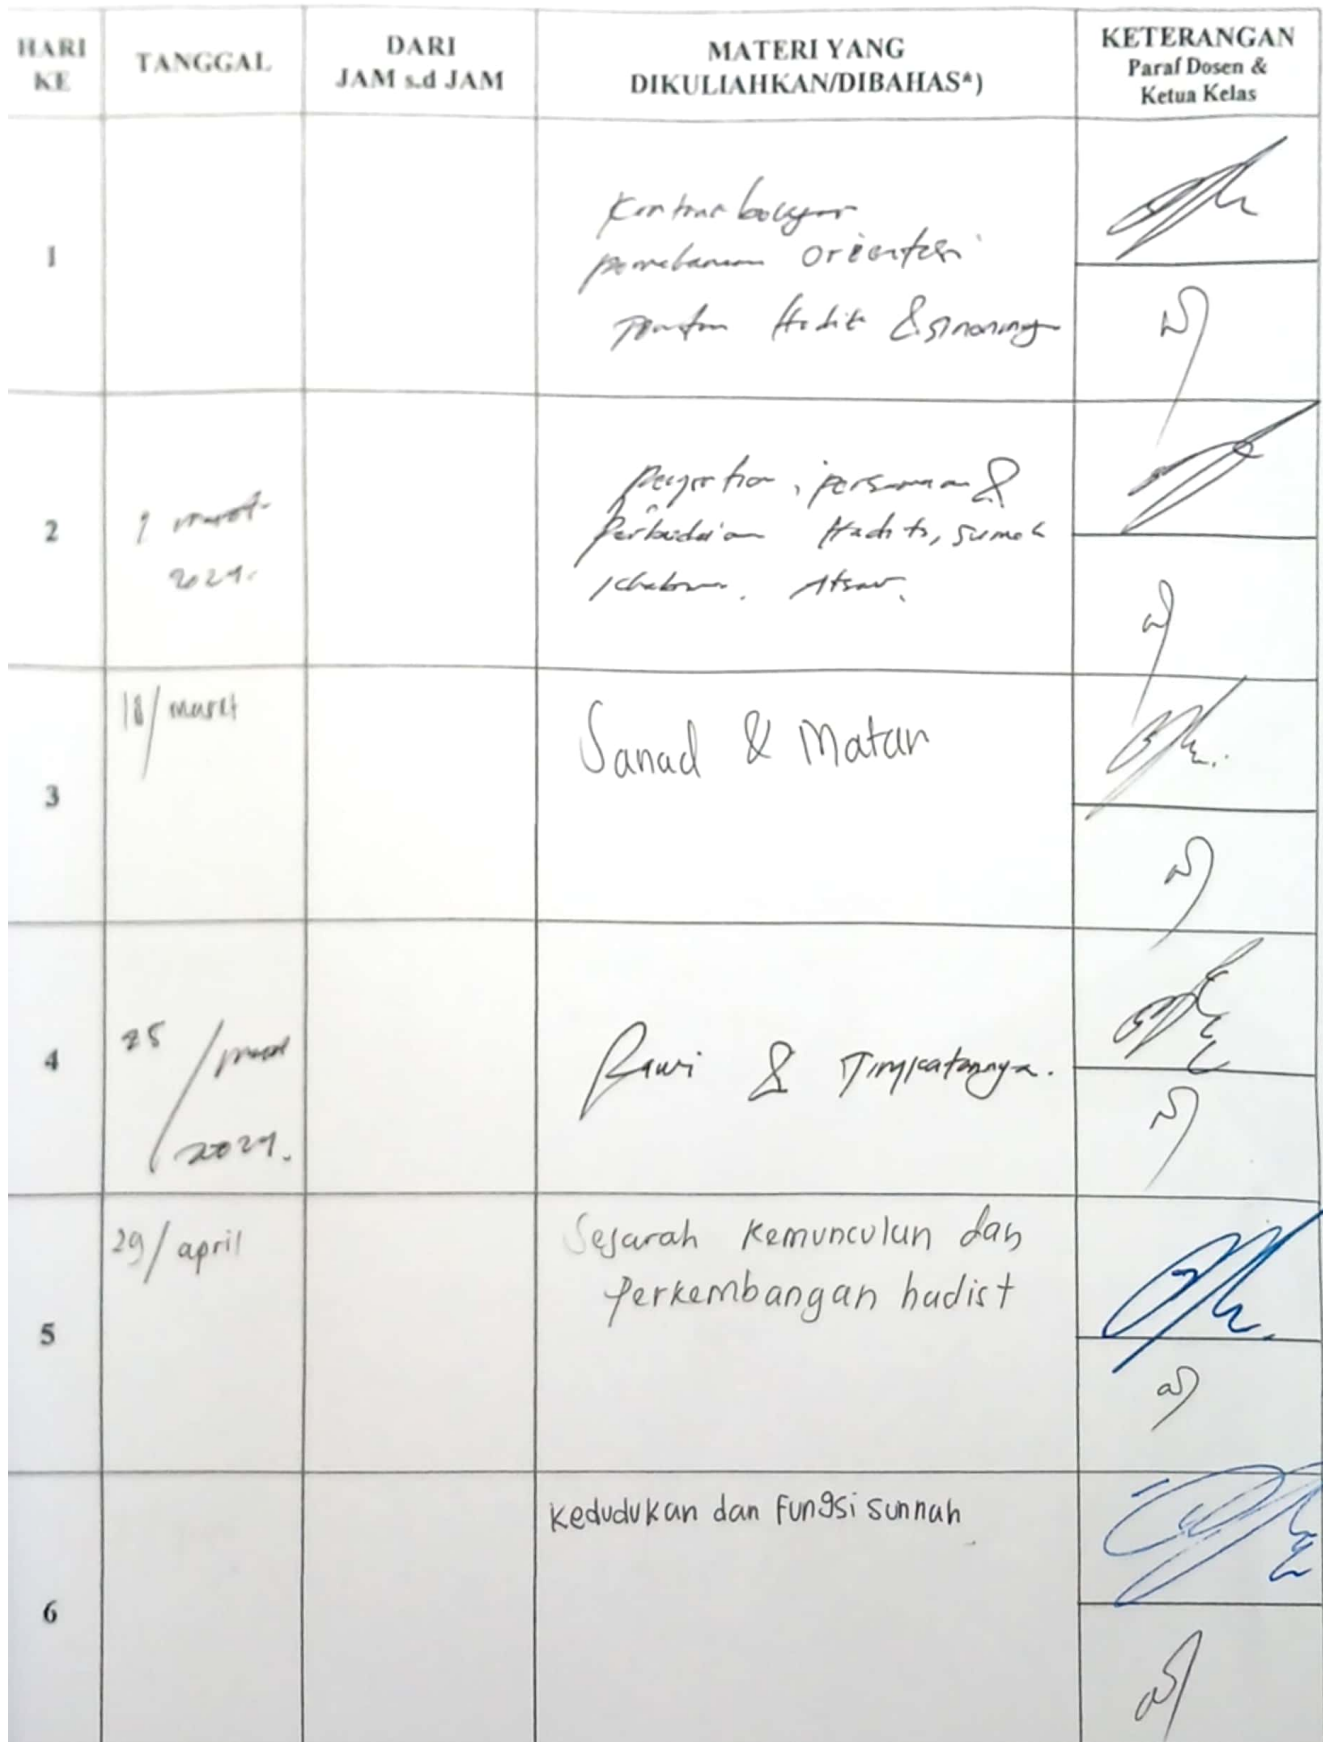 HARI KE
TANGGAL
DARI
JAM s.d JAM
MATERI YANG
DIKULIAHKAN/DIBAHAS*)
KETERANGAN
Paraf Dosen &
Ketua Kelas
1
orientasi
Hadits & sinonimnya
2
maret
2024.
persamaan &
Hadits, sunnah
Khabar. Atsar.
3
18/ maret
Sanad & Matan
4
25 / maret
2024.
Rawi & Tingkatannya.
5
29/ april
Sejarah kemunculan dan
Perkembangan hadist
6
kedudukan dan Fungsi sunnah